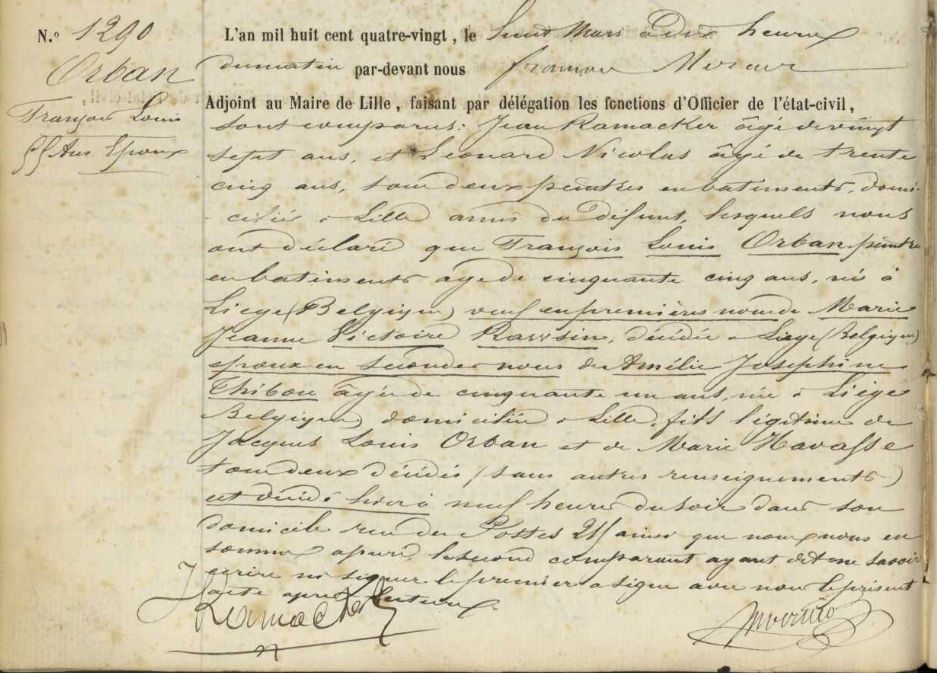 N.º 1290
Orban
François Louis
55 Ans Epoux
L'an mil huit cent quatre-vingt, le huit Mars à dix heures
du matin par-devant nous
Adjoint au Maire de Lille, faisant par délégation les fonctions d'Officier de l'état-civil,
sont comparus: Jean Ramacker âgé de vingt
sept ans, et Léonard Nicolas âgé de trente
cinq ans, tous deux peintres en batiments, domi-
ciliés à Lille amis du défunt, lesquels nous
ont déclaré que François Louis Orban peintre
en batiments âgé de cinquante cinq ans, né à
Liege (Belgique) veuf en premières noces de Marie
Jeanne Victoire Rassin, décédée à Liege (Belgique)
époux en secondes noces de Amélie Josephine
Thibou âgée de cinquante un ans, née à Liège
Belgique) domiciliée à Lille, fils légitime de
Jacques Louis Orban et de Marie Havasse
tous deux décédés (sans autres renseignements)
est décédé hier à neuf heures du soir dans son
domicile rue des Postes ainsi que nous nous en
sommes assuré, le second comparant ayant dit ne savoir
écrire ni signer le premier a signé avec nous le présent
acte après lecture.
J Ramacker